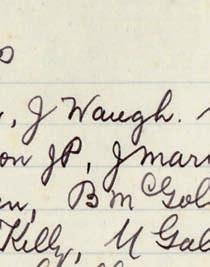 , J Waugh.
on JP, J mar
en, B McGol
Kelly, M Gal